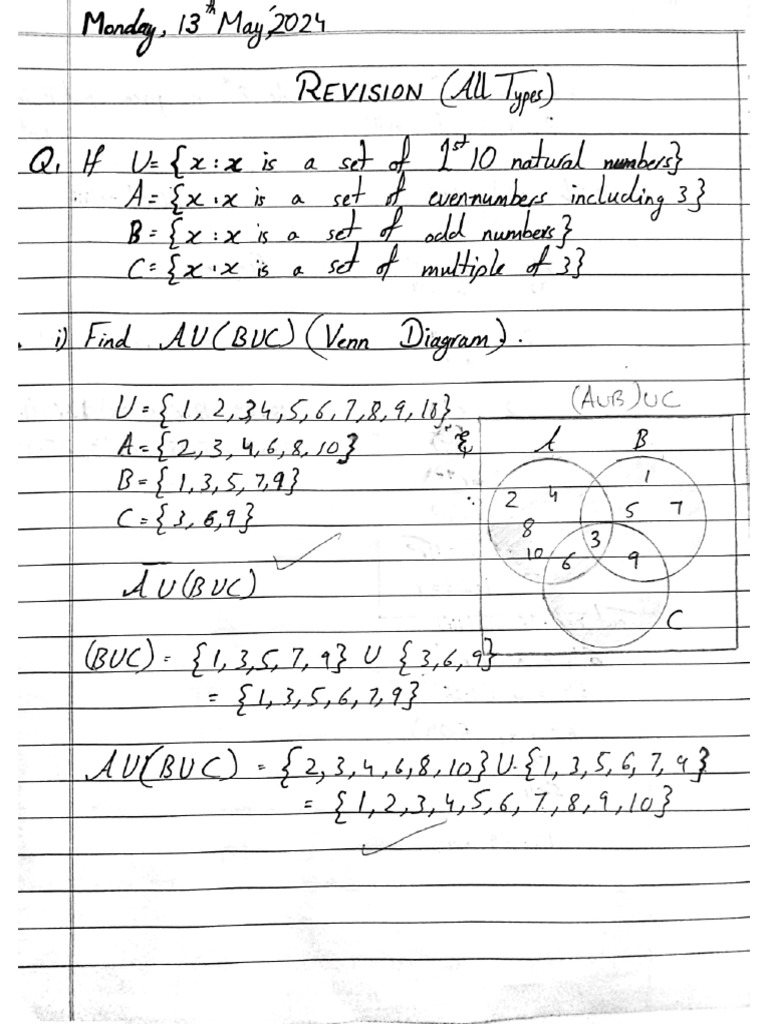 Monday, 13th May, 2024
REVISION (All Types)
Q. If U = {x : x is a set of 1st 10 natural numbers}
A = {x : x is a set of even numbers including 3}
B = {x : x is a set of odd numbers}
C = {x : x is a set of multiple of 3}
i) Find AU(BUC) (Venn Diagram).
U = {1, 2, 3, 4, 5, 6, 7, 8, 9, 10}
A = {2, 3, 4, 6, 8, 10}
B = {1, 3, 5, 7, 9}
C = {3, 6, 9}
(AUB)UC
A B
1
2 4 5 7
8 3
10 6 9
C
AU(BUC)
(BUC) = {1, 3, 5, 7, 9} U {3, 6, 9}
= {1, 3, 5, 6, 7, 9}
AU(BUC) = {2, 3, 4, 6, 8, 10} U {1, 3, 5, 6, 7, 9}
= {1, 2, 3, 4, 5, 6, 7, 8, 9, 10}